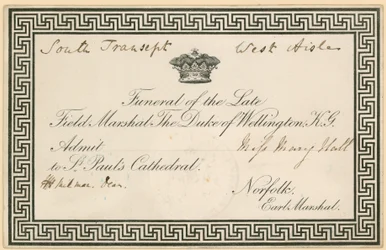 South Transept West Aisle
Funeral of the Late
Field Marshal The Duke of Wellington, K.G.
Admit Miss Mary
to St. Paul's Cathedral.
Milman. Dean. Norfolk.
Earl Marshal.